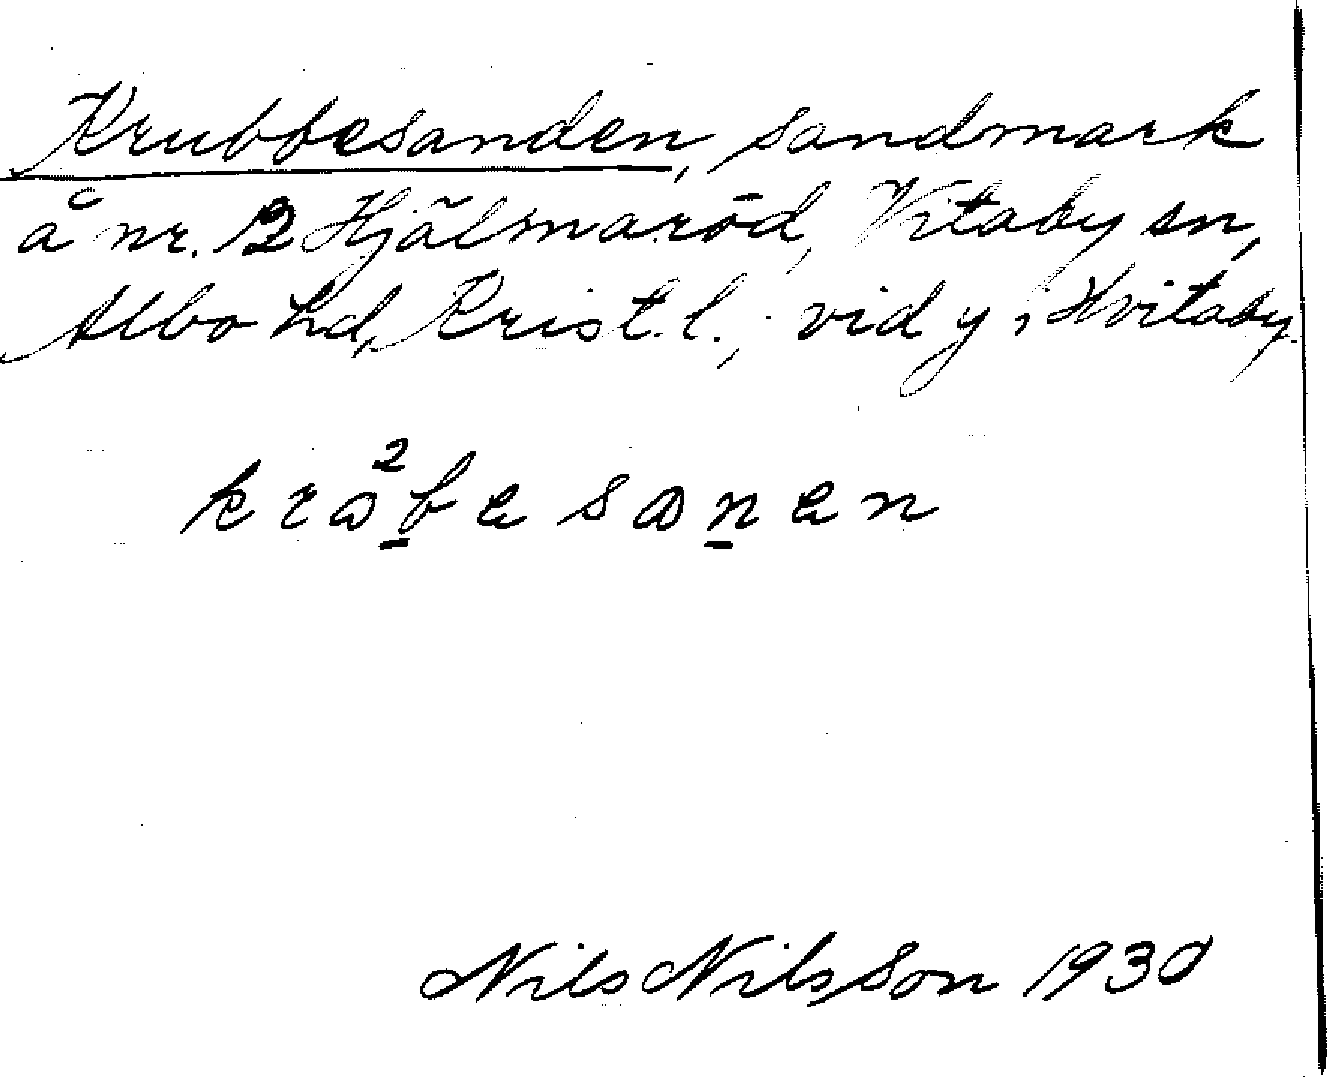 Krubbesanden, sandmark
å nr. 12 Hjälmaröd, Vitaby sn,
Albo hd, Krist. l., vid y i Hvitaby.
Nils Nilsson 1930